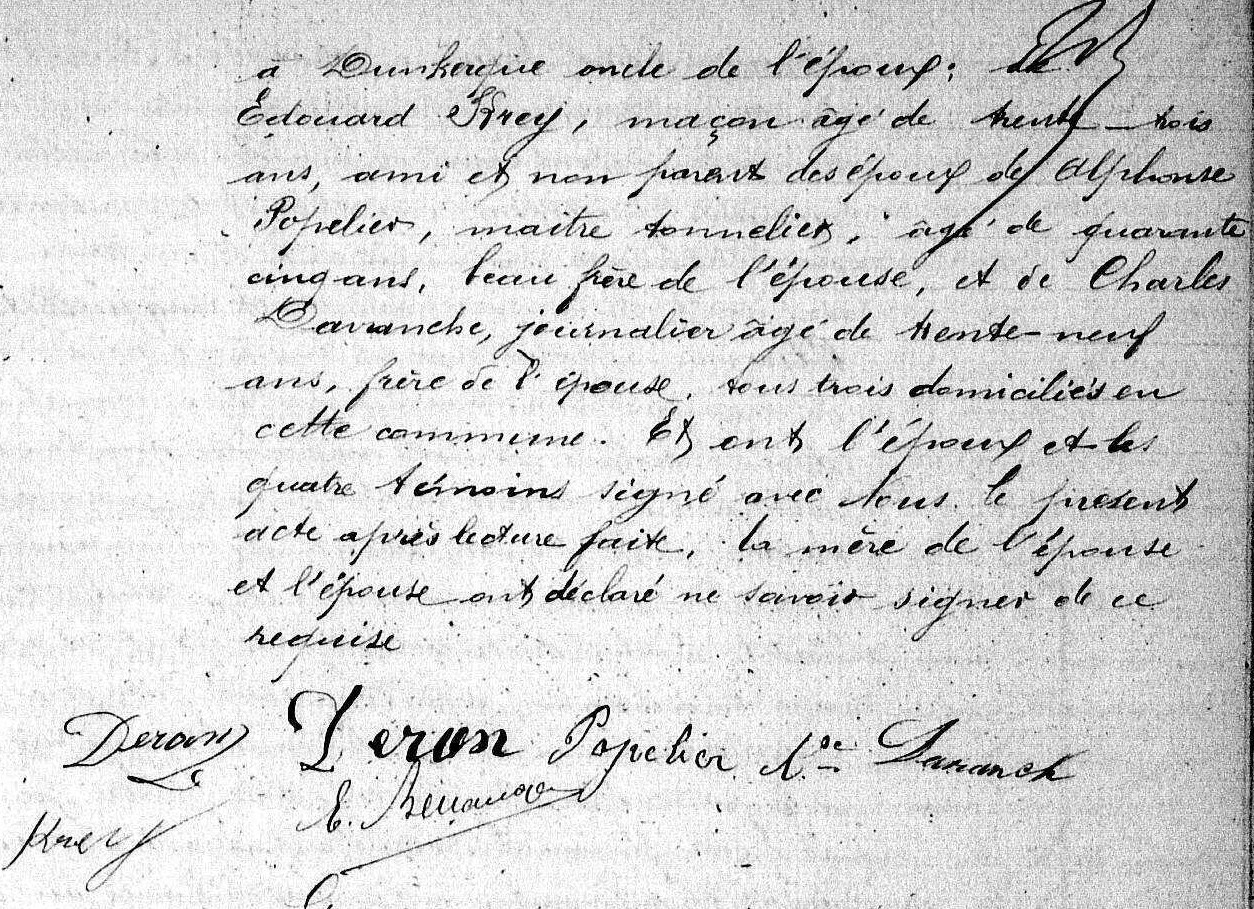 à Dunkerque oncle de l'époux; de
Édouard Krey, maçon âgé de trente-trois
ans, ami et non parent des époux de Alphonse
Popelier, maitre tonnelier, âgé de quarante
cinq ans, beau frère de l'épouse, et de Charles
Davanche, journalier âgé de trente-neuf
ans, frère de l'épouse, tous trois domiciliés en
cette commune. Et ont l'époux et les
quatre témoins signé avec Nous le présent
acte après lecture faite, la mère de l'épouse
et l'épouse ont déclaré ne savoir signer de ce
requise
Deron Deron Popelier Davanch
E.
Krey